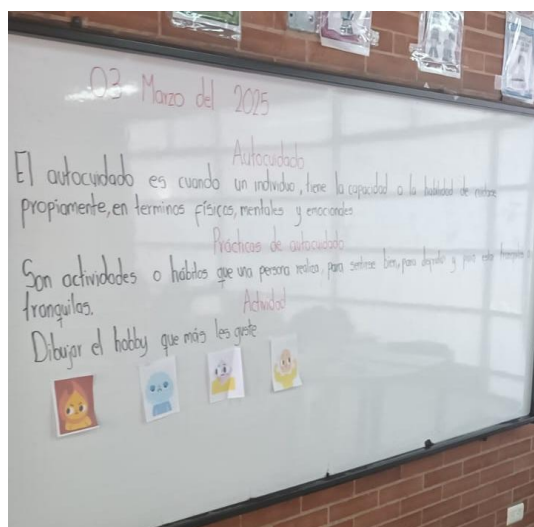 03 Marzo del 2025
Autocuidado
El autocuidado es cuando un individuo, tiene la capacidad o la habilidad de
propiamente, en terminos físicos, mentales y emocionales
Prácticas de autocuidado
Son actividades o hábitos que una persona realiza, para sentirse bien, para y para estar
tranquilas.
Actividad
Dibujar el hobby que más les guste